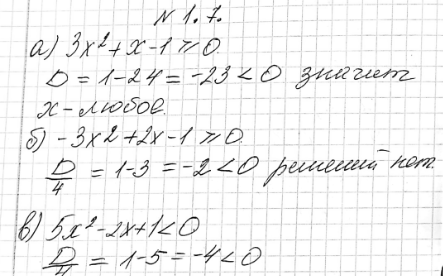 № 1.7.
а) 3x² + x - 1 ≥ 0
D = 1 - 24 = -23 < 0 значит
x - любое.
б) -3x2 + 2x - 1 ≥ 0
D/4 = 1 - 3 = -2 < 0 решений нет.
в) 5x² - 2x + 1 < 0
D/4 = 1 - 5 = -4 < 0